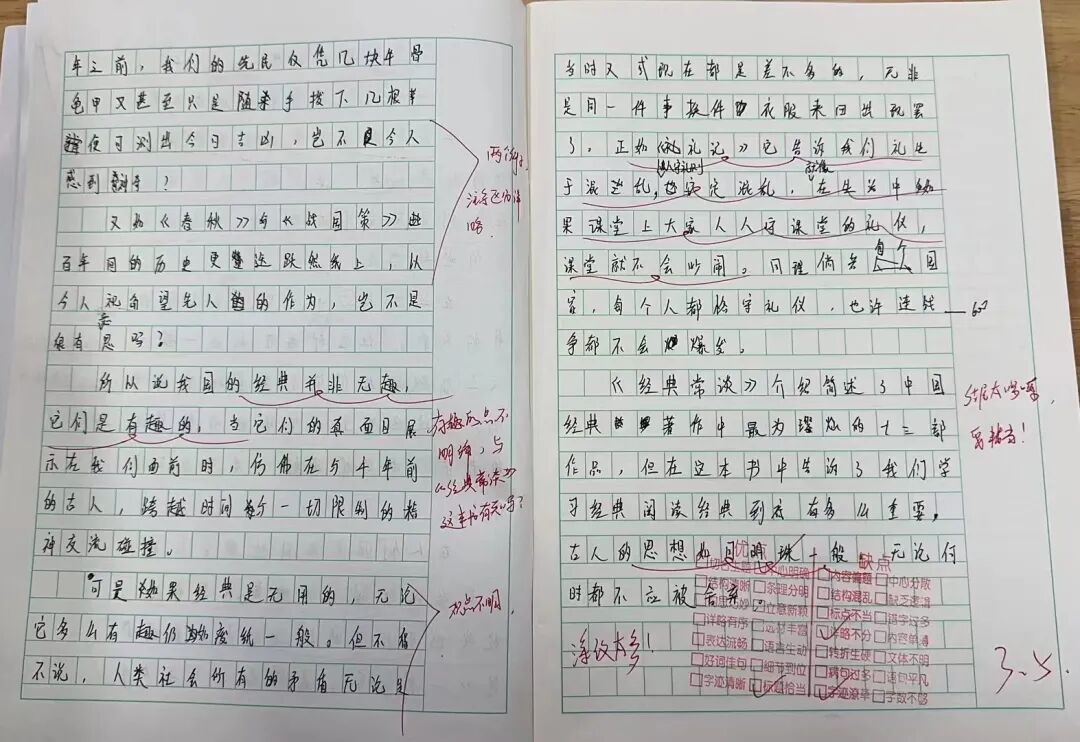 年之前，我们的先民仅凭几块牛骨
龟甲又甚至只是随手拨下几根草
便可测出今日吉凶，岂不是令人
感到神奇？
又如《春秋》与《战国策》些
百年间的历史更跃然纸上，从
今人视角望先人的作为，岂不是
很有意思吗？
所以说我国的经典并非无趣，
它们是有趣的，当它们的真面目展
示在我们面前时，仿佛在与千年前
的古人，跨越时间与一切限制的精
神交流碰撞。
可是如果经典是无用的，无论
它多么有趣仍如废纸一般。但不得
不说，人类社会所有的矛盾无论是
两个例子，
注意区分详
略。
有趣观点不
明确，与
《经典常谈》
这本书有关吗？
观点不明。
当时又或现在都是差不多的，无非
是同一件事换件衣服来回出现罢
了。正如《礼记》它告诉我们礼生
于混乱，
混乱，在生活中如
果课堂上大家人人守课堂的礼仪，
课堂就不会吵闹。同理倘若每个国
家，每个人都恪守礼仪，也许连战
争都不会爆发。
《经典常谈》介绍简述了中国
经典著作中最为璀灿的十三部
作品，但在这本书中告诉了我们学
习经典阅读经典到底有多么重要。
古人的思想如同明珠一般，无论何
时都不应被舍弃。
600
结尾太啰嗦，
要精当！
涂改太多！
优点
缺点
中心明确
内容偏题
中心分散
结构清晰
条理分明
结构混乱
缺乏逻辑
立意新颖
标点不当
错字过多
详略有序
选材丰富
详略不分
内容单薄
表达流畅
语言生动
转折生硬
文体不明
好词佳句
细节到位
病句过多
语句平凡
字迹清晰
标题恰当
字迹潦草
字数不够
3.5